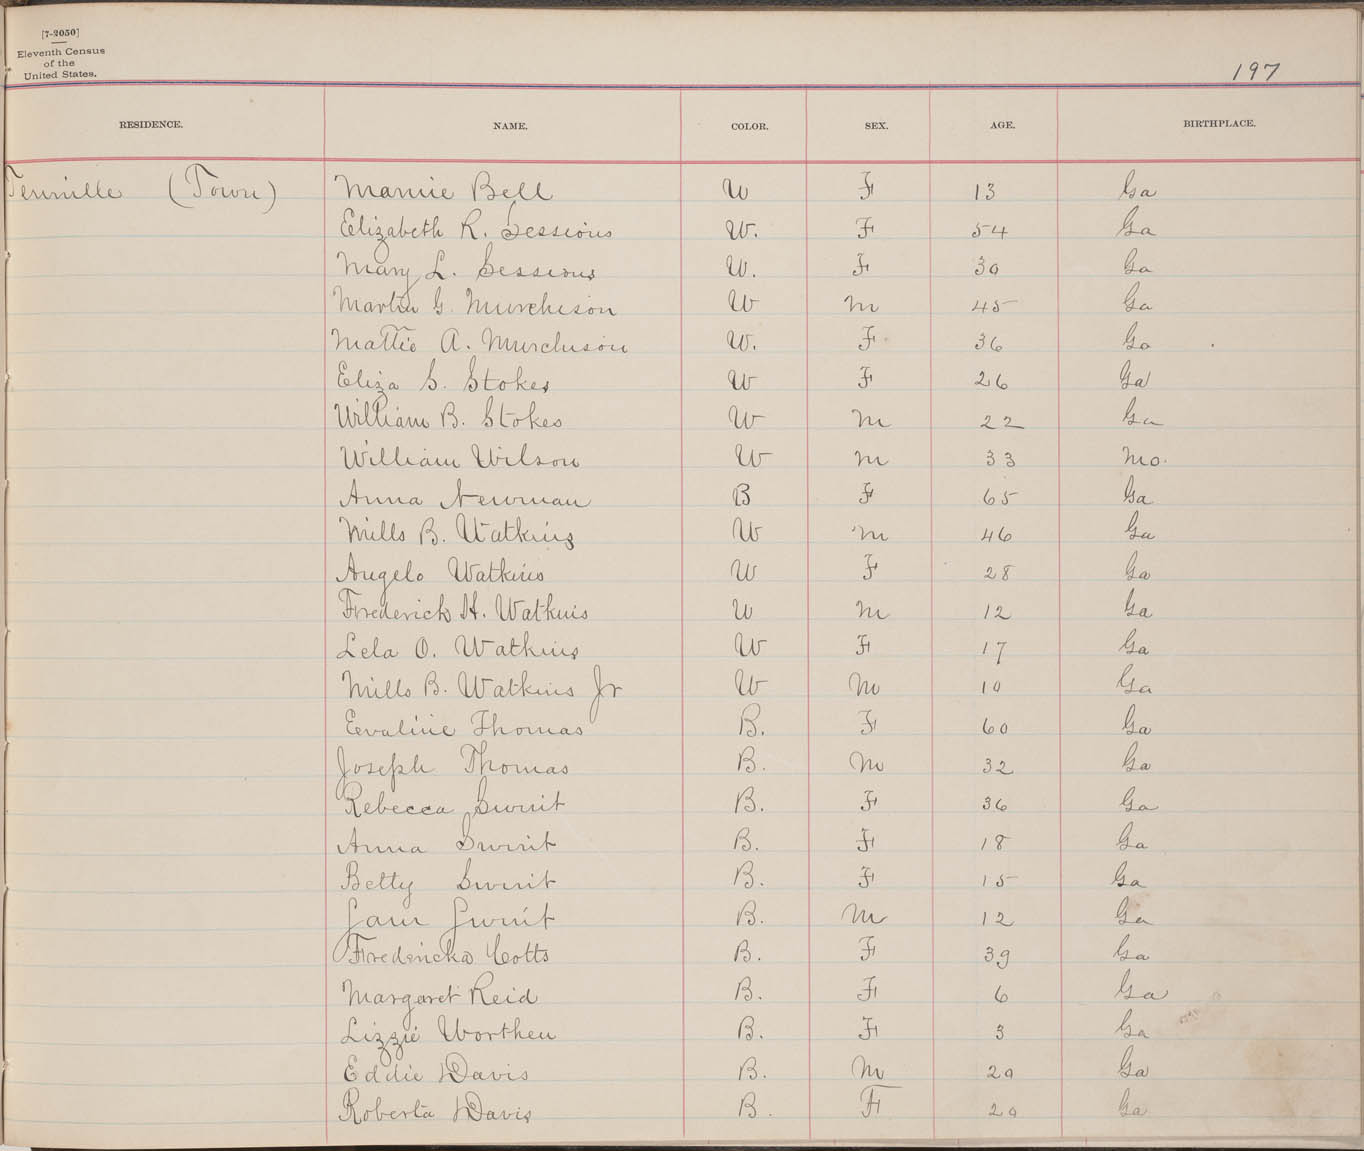 [7-2050]
Eleventh Census
of the
United States.
197
RESIDENCE. NAME. COLOR. SEX. AGE. BIRTHPLACE.
Tennille (Town) Mamie Bell W F 13 Ga
Elizabeth R. Sessions W. F 54 Ga
Mary L. Sessions W. F 30 Ga
Martin G. Murchison W M 45 Ga
Mattie A. Murchison W. F 36 Ga
Eliza S. Stokes W F 26 Ga
William B. Stokes W M 22 Ga
William Wilson W M 33 Mo.
Anna Newman B F 65 Ga
Mills B. Watkins W M 46 Ga
Angelo Watkins W F 28 Ga
Frederick H. Watkins W M 12 Ga
Lela O. Watkins W F 17 Ga
Mills B. Watkins Jr W M 10 Ga
Evaline Thomas B. F 60 Ga
Joseph Thomas B. M 32 Ga
Rebecca Swint B. F 36 Ga
Anna Swint B. F 18 Ga
Betty Swint B. F 15 Ga
Sam Swint B. M 12 Ga
Fredericka Cotts B. F 39 Ga
Margaret Reid B. F 6 Ga
Lizzie Worthen B. F 3 Ga
Eddie Davis B. M 20 Ga
Roberta Davis B. F 20 Ga